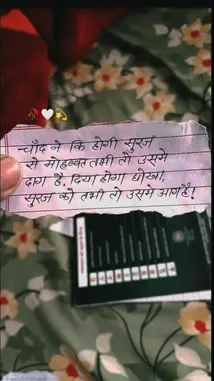 चाँद ने कि होगी सुरज
से मोहब्बत तभी तो उसमे
दाग है, दिया होगा धोखा,
सुरज को तभी तो उसमे आग है!